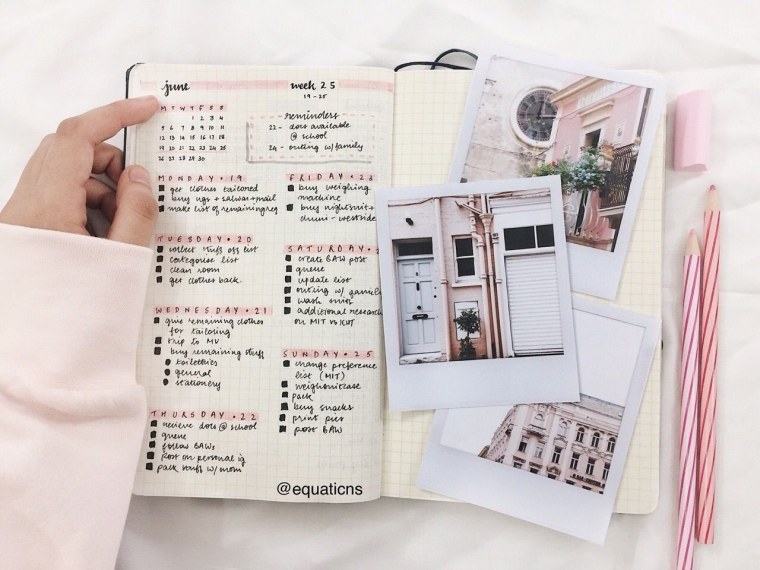 june
week 25
19-25
M T W T F S S
1 2 3 4
5 6 7 8 9 10 11
12 13 14 15 16 17 18
19 20 21 22 23 24 25
26 27 28 29 30
reminders
22 - docs available
@ school
24 - outing w/ family
MONDAY • 19
get clothes tailored
buy ngs + salwar + mail
make list of remaining req
TUESDAY • 20
collect stuff off list
categorise list
clean room
get clothes back.
WEDNESDAY • 21
give remaining clothes
for tailoring
trip to MV
buy remaining stuff
toiletries
general
stationery
THURSDAY • 22
recieve docs @ school
queue
follow BAWs
post on personal ig
pack stuff w/ mom
FRIDAY • 23
buy weighing
machine
buy nightsuit +
chuni - westside
SATURDAY •
create BAW post
queue
update list
outing w/ family
wash
additional research
on MIT vs
SUNDAY • 25
change preference
list (MIT)
weigh suitcase
pack
buy snacks
print pics
post BAW
@equaticns